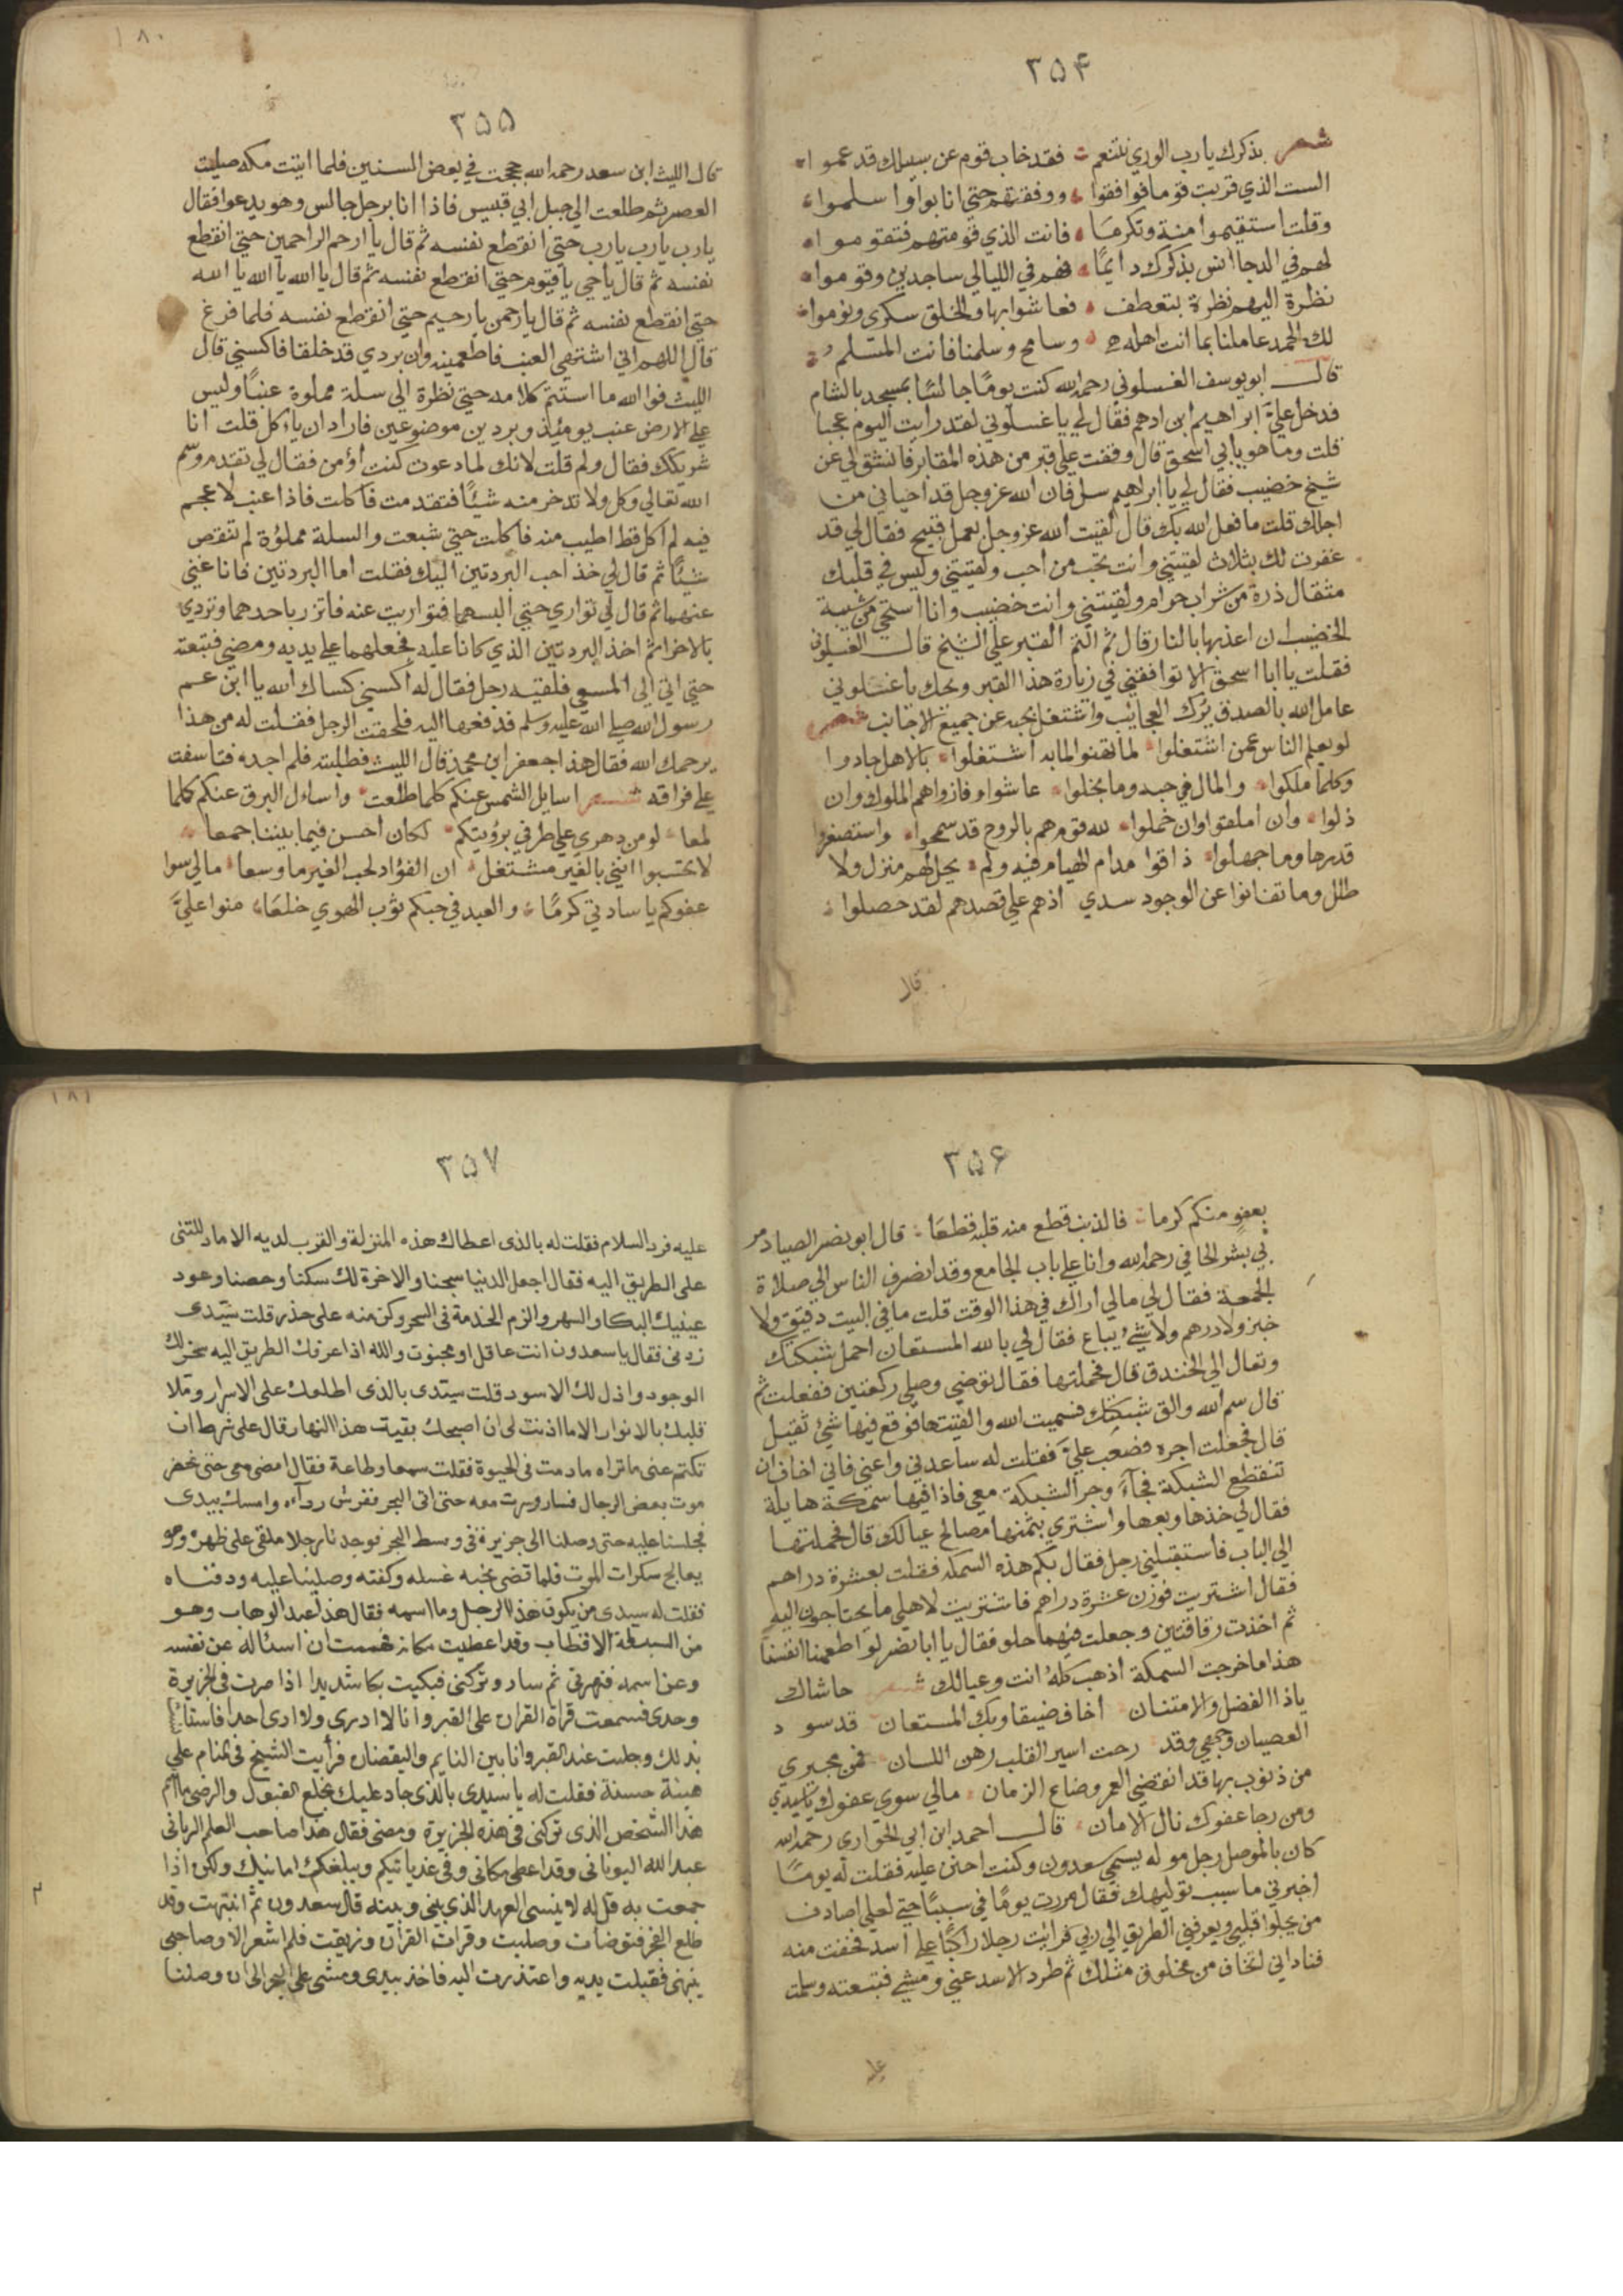 ٣٥٤
شعر بذكرك يا رب الوري نتنعم فقد خاب قوم عن سبيلك قد عموا
الست الذي قربت قوما فوافقوا ووفقتهم حتي انابوا واسلموا
وقلت استقيموا منة وتكرمًا فانت الذي قومتهم فتقوموا
لهم في الدجا انس بذكرك دايمًا فهم في الليالي ساجدين وقوموا
نظرة اليهم نظرة بتعطف فعاشوا بها والخلق سكري ونوموا
لك الحمد عاملنا بما انت اهله وسامح وسلمنا فانت المسلم
قال ابو يوسف الغسلوني رحمه الله كنت يومًا جالسًا بمسجد بالشام
فدخل علي ابراهيم ابن ادهم فقال لي يا غسلوني لقد رايت اليوم عجبا
قلت وما هو يا ابي اسحق قال وقفت علي قبر من هذه المقابر فانشق لي عن
شيخ خضيب فقال لي يا ابراهيم سل فان الله عز وجل قد احياني من
اجلك قلت ما فعل الله بك قال لقيت الله عز وجل بعمل قبيح فقال لي قد
غفرت لك بثلاث لقيتني وانت تحب من احب ولقيتني وليس في قلبك
مثقال ذرة من شراب حرام ولقيتني وانت خضيب وانا استحي من شيبة
الخضيب ان اعذبها بالنار قال ثم التم القبر علي الشيخ قال الغسلوني
فقلت يا ابا اسحق الا توافقني في زيارة هذا القبر ويحك يا غسلوني
عامل الله بالصدق يرك العجائب واشتغل بحبه عن جميع الاجانب شعر
لو يعلم الناس عمن اشتغلوا لما تهنوا لما به اشتغلوا بالاهل جادوا
وكلما ملكوا والمال في حبه وما بخلوا عاشوا وفازوا هم الملوك وان
ذلوا وان املقوا وان خملوا لله قوم هم بالروح قد سمحوا واستصغروا
قدرها وما جهلوا ذاقوا مدام الهيام فيه ولم يحل لهم منزل ولا
طلل وما تفانوا عن الوجود سدي اذهم علي قصدهم لقد حصلوا
قال
٣٥٥
قال الليث ابن سعد رحمه الله حججت في بعض السنين فلما اتيت مكه صليت
العصر ثم طلعت الي جبل ابي قبيس فاذا انا برجل جالس وهو يدعوا فقال
يا رب يا رب يا رب حتي انقطع نفسه ثم قال يا ارحم الراحمين حتي انقطع
نفسه ثم قال يا حي يا قيوم حتي انقطع نفسه ثم قال يا الله يا الله يا الله
حتي انقطع نفسه ثم قال يا رحمن يا رحيم حتي انقطع نفسه فلما فرغ
قال اللهم اني اشتهي العنب فاطعمنيه وان بردي قد خلقا فاكسني قال
الليث فوالله ما استتم كلامه حتي نظرة الي سلة مملوة عنبًا وليس
علي الارض عنب يومئذ وبردين موضوعين فاراد ان ياكل قلت انا
شريكك فقال ولم قلت لانك لما دعوت كنت اؤمن فقال لي تقدم وسم
الله تعالي وكل ولا تدخر منه شيئًا فتقدمت فاكلت فاذا عنب لا عجم
فيه لم اكل قط اطيب منه فاكلت حتي شبعت والسلة مملؤة لم تنقص
شيئًا ثم قال لي خذ احب البردتين اليك فقلت اما البردتين فانا غني
عنهما ثم قال لي تواري حتي البسهما فتواريت عنه فاتزر باحدهما وتردي
بالاخر ثم اخذ البردتين الذي كانا عليه فجعلهما علي يديه ومضي فتبعته
حتي اتي الي المسعي فلقيه رجل فقال له اكسني كساك الله يا ابن عم
رسول الله صلي الله عليه وسلم فدفعها اليه فلحقت الرجل فقلت له من هذا
يرحمك الله فقال هذا جعفر ابن محمد قال الليث فطلبته فلم اجده فتاسفت
علي فراقه شعر اسايل الشمس عنكم كلما طلعت واساءل البرق عنكم كلما
لمعا لو من دهري علي طرفي برؤيتكم لكان احسن فيما بيننا جمعا
لا تحسبوا انني بالغير مشتغل ان الفؤاد لحب الغير ما وسعا مالي سوا
عفوكم يا سادتي كرمًا والعبد في حبكم ثوب الهوي خلعًا منوا عليَّ
٣٥٦
بعفو منكم كرما فالذنب قطع منه قلبه قطعًا قال ابو نصر الصياد مر
بي بشر الحافي رحمه الله وانا علي باب الجامع وقد انصرف الناس الي صلاة
الجمعة فقال لي مالي اراك في هذا الوقت قلت ما في البيت دقيق ولا
خبز ولا درهم ولا شئ يباع فقال لي بالله المستعان احمل شبكتك
وتعال الي الخندق قال فحملتها فقال توضي وصلي ركعتين ففعلت ثم
قال سم الله والق شبكتك فسميت الله والقيتها فوقع فيها شئ ثقيل
قال فجعلت اجره فصعب عليَّ فقلت له ساعدني واعني فاني اخاف ان
تنقطع الشبكة فجاء وجر الشبكة معي فاذا فيها سمكة هايلة
فقال لي خذها وبعها واشتري بثمنها مصالح عيالك قال فحملتها
الي الباب فاستقبلني رجل فقال بكم هذه السمكه فقلت بعشرة دراهم
فقال اشتريت فوزن عشرة دراهم فاشتريت لاهلي ما يحتاجون اليه
ثم اخذت رقاقتين وجعلت فيهما حلو فقال يا ابا نصر لو اطعمنا انفسنا
هذا ما خرجت السمكة اذهب كله انت وعيالك شعر حاشاك
ياذا الفضل والامتنان اخاف ضيقا وبك المستعان قد سو د
العصيان وجهي وقد رحت اسير القلب رهن اللسان فمن مجيري
من ذنوب بها قد انقضي العمر وضاع الزمان مالي سوي عفوك يا سيدي
ومن رجا عفوك نال الامان قال احمد ابن ابي الحواري رحمه الله
كان بالموصل رجل موله يسمي سعدون وكنت احن عليه فقلت له يومًا
اخبرني ما سبب تولهك فقال مررت يومًا في سياحتي لعلي اصادف
من يجلوا قلبي ويعرفني الطريق الي ربي فرايت رجلا راكبًا علي اسد فخفت منه
فناداني اتخاف من مخلوق مثلك ثم طرد الاسد عني ومشي فتبعته وسلمت
٣٥٧
عليه فرد السلام فقلت له بالذى اعطاك هذه المنزلة والقرب لديه الا ما دللتنى
على الطريق اليه فقال اجعل الدنيا سجنا والاخرة لك سكنا وحصنا وعود
عينيك البكا والسهر والزم الخدمة فى السحر وكن منه على حذر قلت سيدى
زدنى فقال يا سعدون انت عاقل او مجنون والله اذا عرفك الطريق اليه سخر لك
الوجود واذل لك الاسود قلت سيدى بالذى اطلعك على الاسرار وملا
قلبك بالانوار الا ما اذنت لى ان اصحبك بقيت هذا النهار قال على شرط ان
تكتم عنى ما تراه ما دمت فى الحيوة فقلت سمعا وطاعة فقال امضى معى حتى نحضر
موت بعض الرجال فسار وسرت معه حتى اتى البحر ففرش رداءه وامسك بيدى
فجلسنا عليه حتى وصلنا الى جزيرة فى وسط البحر فوجدنا رجلا ملقى على ظهره وهو
يعالج سكرات الموت فلما قضى نحبه غسله وكفنه وصلينا عليه ودفناه
فقلت له سيدى من يكون هذا الرجل وما اسمه فقال هذا عبد الوهاب وهو
من السبعة الاقطاب وقد اعطيت مكانه فهممت ان اساله عن نفسه
وعن اسمه فنهرنى ثم سار وتركنى فبكيت بكا شديدا اذا صرت فى الجزيرة
وحدى فسمعت قراة القران على القبر وانا لا ادرى ولا ارى احدا فاستانست
بذلك وجلست عند القبر وانا بين النايم واليقضان فرأيت الشيخ فى المنام علي
هيئة حسنة فقلت له يا سيدى بالذى جاد عليك بخلع القبول والرضى ما اسم
هذا الشخص الذى تركنى فى هذه الجزيرة ومضى فقال هذا صاحب العلم الربانى
عبد الله اليونانى وقد اعطى مكانى وفى غد ياتيكم ويبلغكم امانيك ولكن اذا
جمعت به قل له لا ينسى العهد الذى بينى وبينه قال سعدون ثم انتبهت وقد
طلع الفجر فتوضات وصليت وقرات القران فلم اشعر الا وصاحبى
ينهنى فقبلت يديه واعتذرت اليه فاخذ بيدى ومشى على البحر الى ان وصلنا